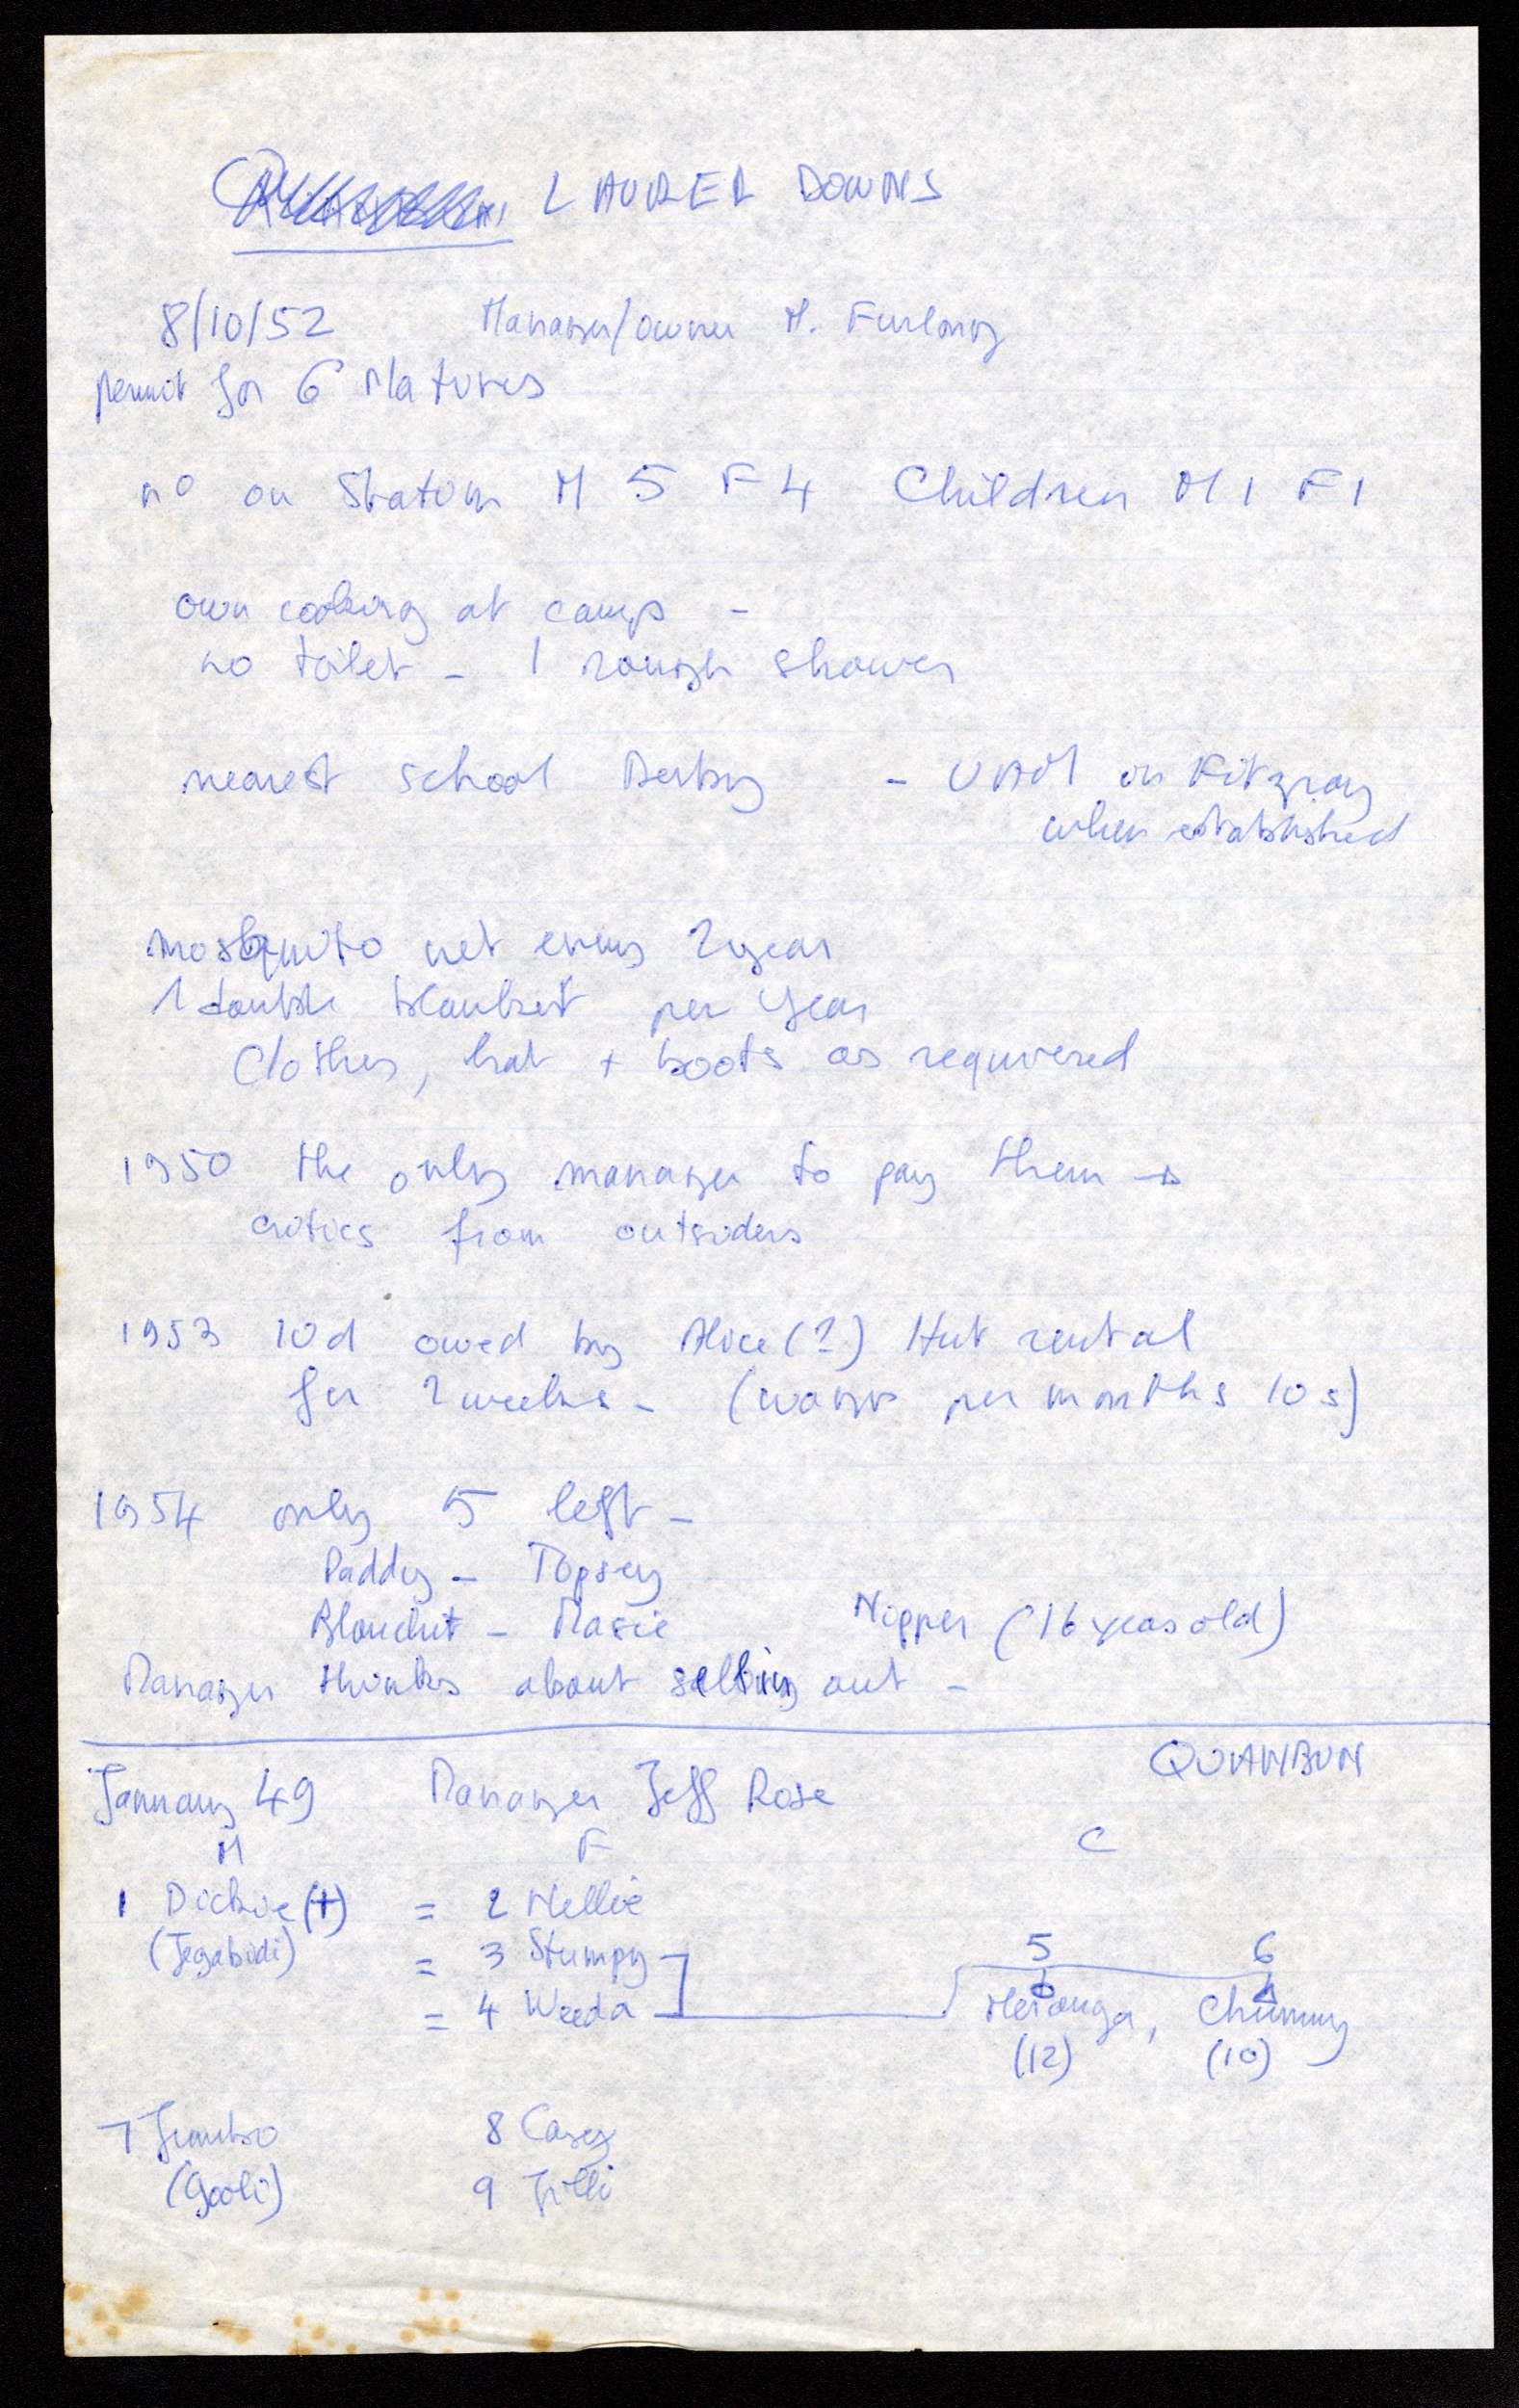 LAUREL DOWNS
8/10/52 Manager/owner M. Furlong
permit for 6 Natives
n° on Station M 5 F 4 Children M 1 F 1
own cooking at camp -
no toilet - 1 rough shower
nearest school Derby - UAM in Fitzroy
when established
mosquito net every 2 year
1 double blanket per year
Clothes, hat + boots as required
1950 the only manager to pay them →
critics from outsiders
1953 10d owed by Alice (?) Hut rental
for 2 weeks - (wages per months 10 s)
1954 only 5 left -
Paddy - Topsey
- Masie Nipper (16 years old)
Manager thinks about selling out -
QUANBUN
January 49 Manager Jeff Rose
M F C
1 Dickie (+) = 2 Nellie
(Jegabidi) = 3 Stumpy 5 6
= 4 Weeda Meranga, Chummy
(12) (10)
7 Jumbo 8 Casey
(Gooli) 9 Jilli